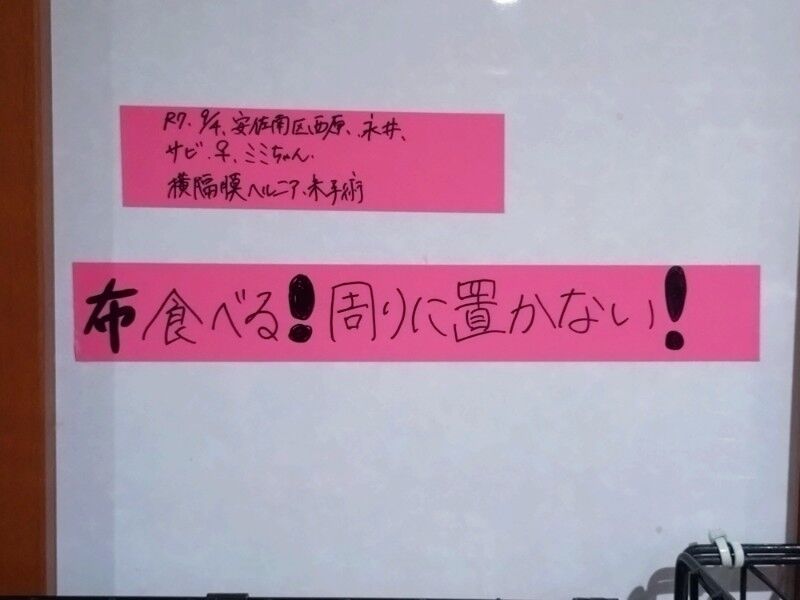 R7. 9/4、安佐南区西原、永井、
サビ・♀、ミミちゃん.
横隔膜ヘルニア、未手術
布食べる!周りに置かない!